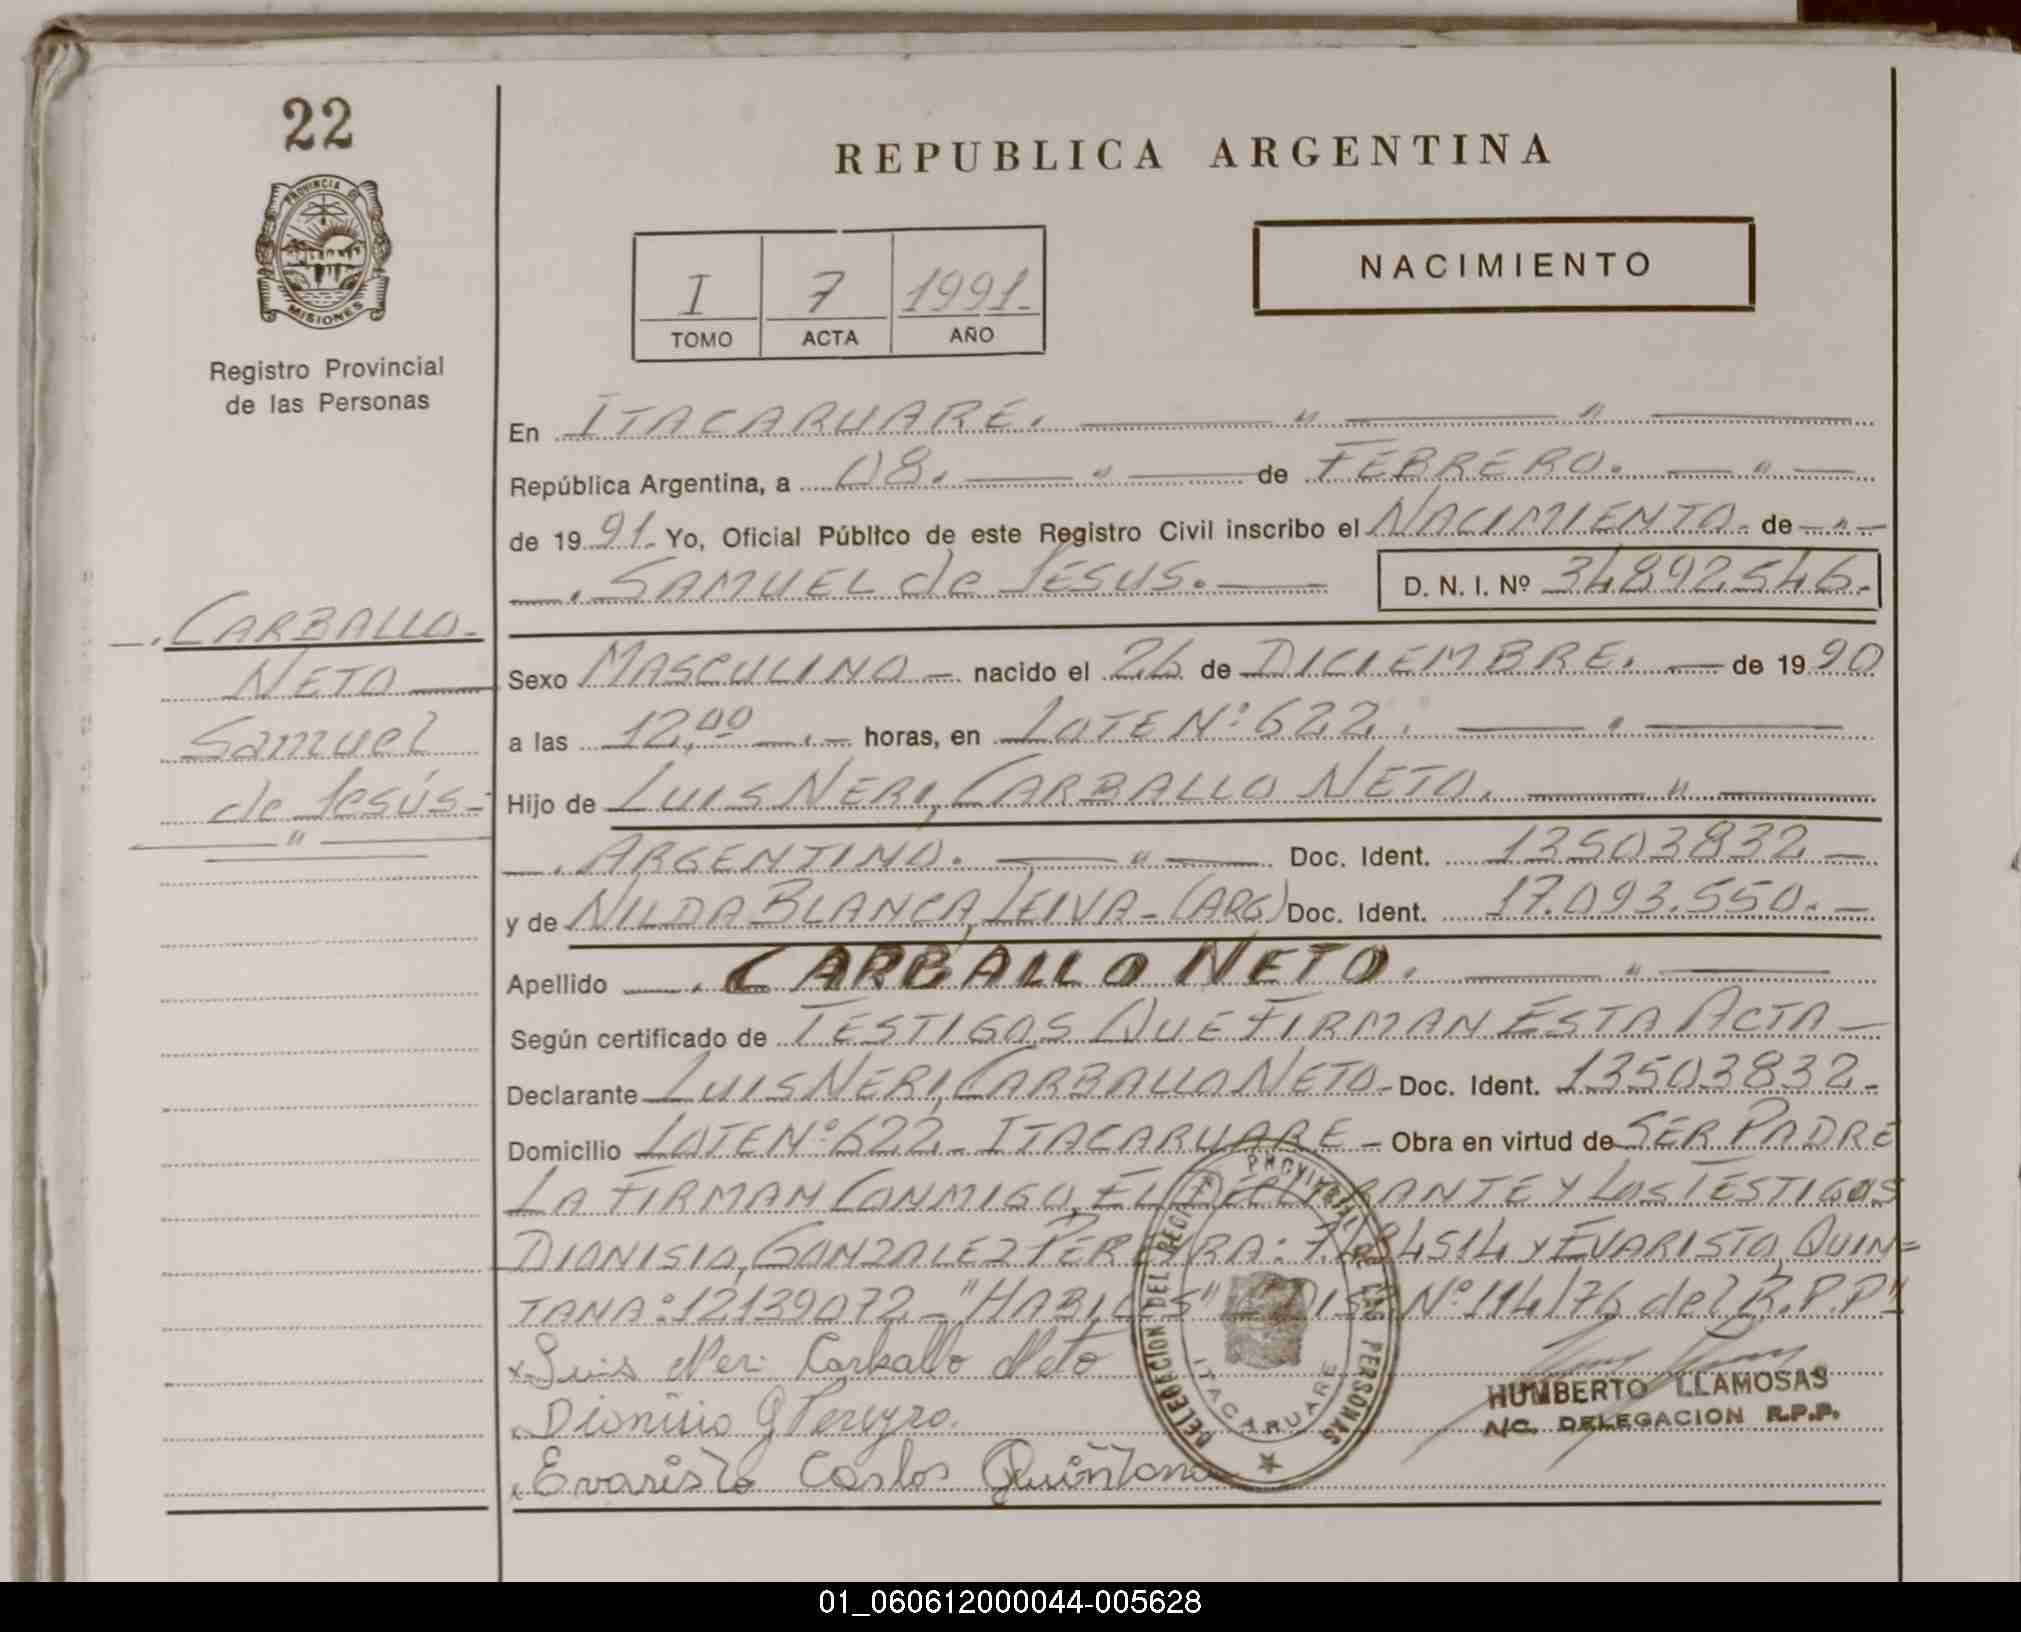 22
PROVINCIA DE
MISIONES
Registro Provincial
de las Personas
REPUBLICA ARGENTINA
I 7 1991.-
TOMO ACTA AÑO
NACIMIENTO
En ITACARUARE. — " — " —
República Argentina, a 08. — " — de FEBRERO. — " —
de 1991.- Yo, Oficial Público de este Registro Civil inscribo el NACIMIENTO- de — " —
—. SAMUEL de JESUS. — D. N. I. Nº 34892546.-
—. CARBALLO-
NETO —
Samuel
de Jesús-
— " —
Sexo MASCULINO — nacido el 26 de DICIEMBRE. — de 1990
a las 12,00 —.— horas, en LOTE Nº 622. — . —
Hijo de LUIS NERI, CARBALLO NETO. — " —
—. ARGENTINO. — " — Doc. Ident. 13503832 —
y de NILDA BLANCA, LEIVA - (ARG.) Doc. Ident. 17.093.550. —
Apellido —. CARBALLO NETO. — " —
Según certificado de TESTIGOS QUE FIRMAN ESTA ACTA —
Declarante LUIS NERI, CARBALLO NETO - Doc. Ident. 13503832-
Domicilio LOTE Nº 622 - ITACARUARE - Obra en virtud de SER PADRE
LA FIRMAN CONMIGO, EL DECLARANTE Y LOS TESTIGOS
DIONISIO, GONZALEZ PEREYRA: Y EVARISTO, QUIN=
TANA: 12139072 - "HABILES" - DISP. Nº 114/76 del R.P.P"
x Luis Neri Carballo Neto
Dionisio G Pereyra.
x Evaristo Carlos Quintana
DELEGACION DEL REGISTRO PROVINCIAL DE LAS PERSONAS
ITACARUARE
HUMBERTO LLAMOSAS
A/C. DELEGACION R.P.P.
01_060612000044-005628